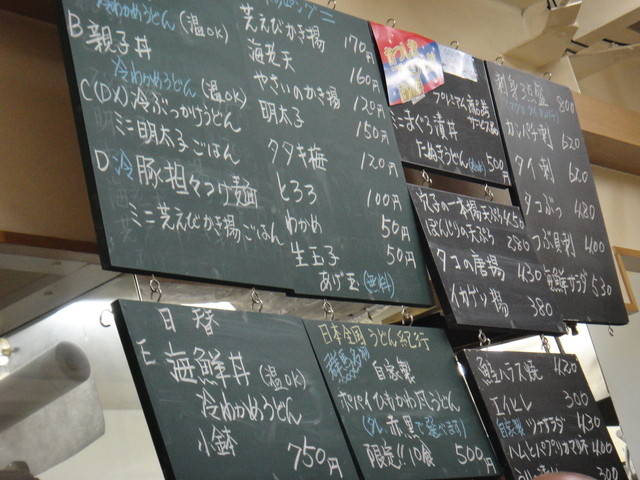 冷わかめうどん(温OK)
B 親子丼
冷わかめうどん(温OK)
C(DX)冷ぶっかけうどん
ミニ明太子ごはん
D 冷豚坦々つけ麺
ミニ芝えびかき揚ごはん
トッピング
芝えびかき揚 170円
海老天 160円
やさいのかき揚 120円
明太子 150円
タタキ梅 120円
とろろ 100円
わかめ 50円
生玉子 50円
あげ玉(無料)
プレミアム
ミニまぐろ漬丼
たぬきうどん 500円
刺身3点盛 800
カンパチ刺 620
タイ刺 620
タコぶつ 480
つぶ貝刺 400
海鮮サラダ 530
穴子の一本揚天ぷら 450
ぼんじりの天ぷら 2コ 280
タコの唐揚 430
イカゲソ揚 380
日替
E 海鮮丼(温OK)
冷わかめうどん
小鉢
750円
日本全国うどん紀行
自家製
うどん
(タレ赤黒で選べます)
限定!!10食 500円
鮭ハラス焼 420
エイヒレ 300
自家製ツナサラダ 430
400
300